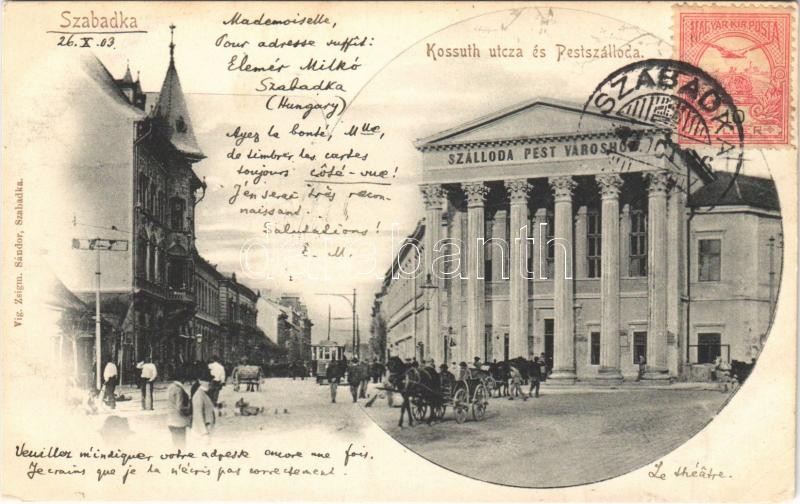 Szabadka
26. X. 03.
Mademoiselle,
Pour adresse suffit:
Elemér Milkó
Szabadka
(Hungary)
Ayez la bonté, Mlle,
de timbrer les cartes
toujours côté-vue!
J'en serai très recon-
naissant.
Salutations!
E. M.
Kossuth utcza és Pestszálloda.
MAGYAR KIR. POSTA
SZABADKA
SZÁLLODA PEST VÁROSHOZ
Vig. Zsigm. Sándor, Szabadka.
darabanth
Veuillez m'indiquer votre adresse encore une fois.
Je crains que je la n'écris pas correctement.
Le théâtre.